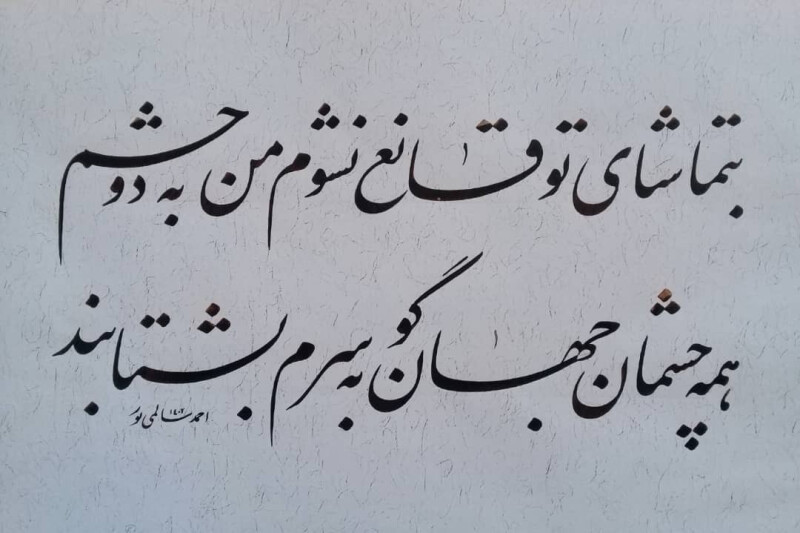 بتماشای تو قانع نشوم من به دو چشم
همه چشمان جهان گو به سرم بشتابند
احمد سالمی نور ۱۴۰۲